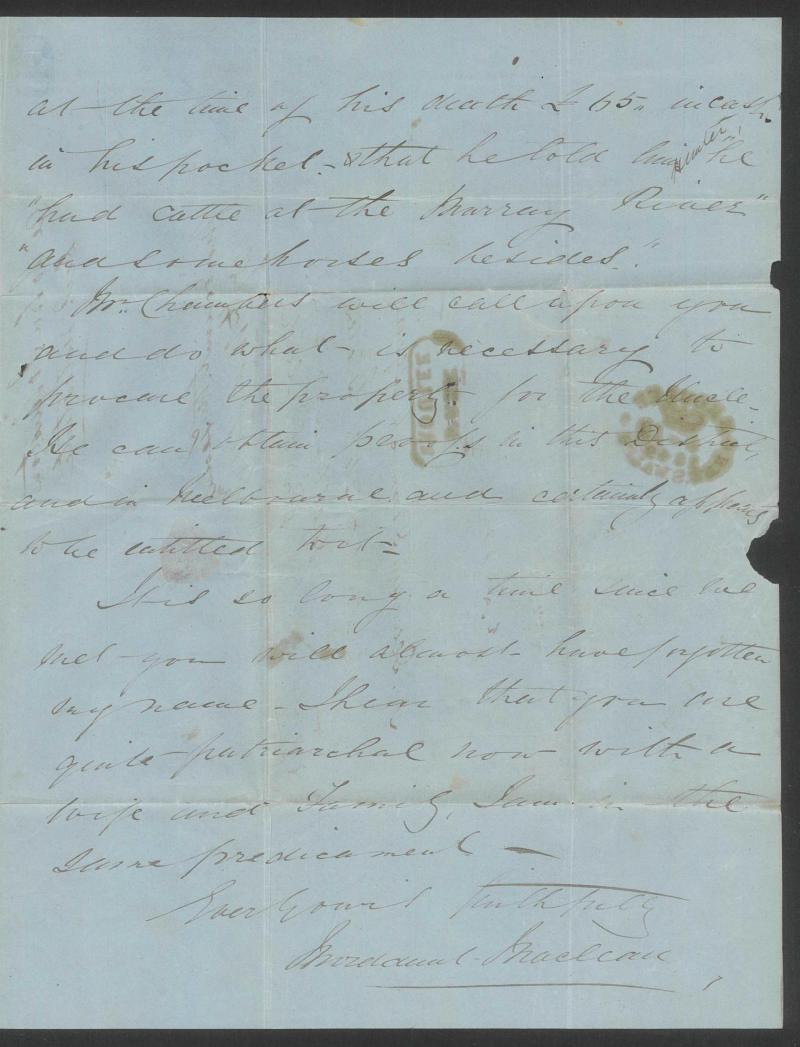 at the time of his death £65,, in cash
in his pocket - & that he told him Hunter, "he
"had cattle at the Murray River"
"and some horses besides."
Mr. Chambers will call upon you
and do what is necessary to
procure the property for the Uncle -
He can obtain proofs in this District,
and in Melbourne and certainly appears
to be intitled to it -
It is so long a time since we
met - you will almost have forgotten
my name - I hear that you are
quite patriarchal now with a
wife and Family, I am in the
same predicament -
Ever Yours faithfully
Mordaunt Maclean